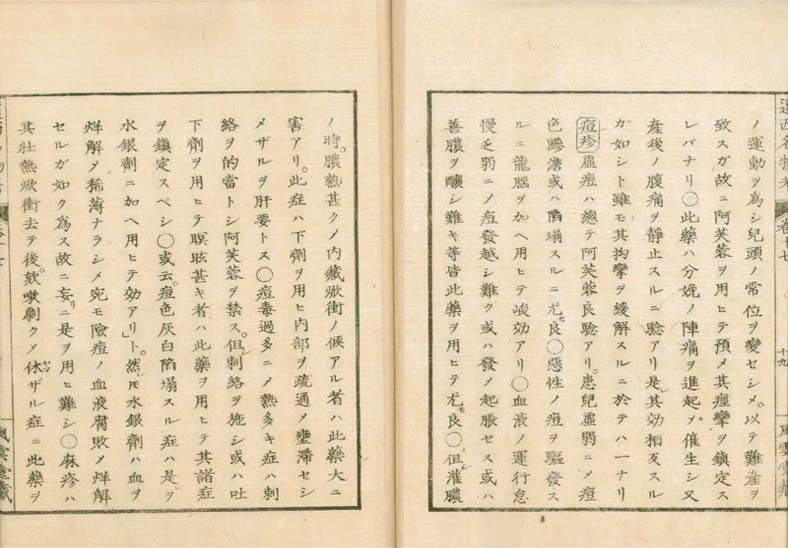 遠西名物考 卷十七 十九 風雲堂藏
ノ運動ヲ為シ兒頭ノ常位ヲ變セシメ。以テ難產ヲ
致スガ故ニ阿芙蓉ヲ用ヒテ預メ其痙攣ヲ鎮定ス
レバナリ〇此藥ハ分娩ノ陣痛ヲ進起メ催生シ又
產後ノ腹痛ヲ静止スルニ驗アリ是其効相反スル
ガ如シト雖モ其拘攣ヲ緩解スルニ於テハ一ナリ
痘疹 虚痘ハ總テ阿芙蓉良驗アリ。患兒虚弱ニメ痘
色黲澹或ハ陷塌スルニ尤良〇惡性ノ痘ヲ驅發ス
ルニ龍腦ヲ加ヘ用ヒテ峻効アリ〇血液ノ運行怠
慢乏弱ニメ痘發越シ難ク或ハ發メ起脹セス或ハ
善膿ヲ釀シ難キ等皆此藥ヲ用ヒテ尤良〇但灌膿
ノ時。膿熱甚クメ内藏焮衝ノ候アル者ハ此藥大ニ
害アリ。此症ハ下劑ヲ用ヒ内部ヲ疏通メ壅滯セシ
メザルヲ肝要トス〇痘毒過多ニメ熱多キ症ハ刺
絡ヲ的當トシ阿芙蓉ヲ禁ス。但刺絡ヲ施シ或ハ吐
下劑ヲ用ヒテ瞑眩甚キ者ハ此藥ヲ用ヒテ其諸症
ヲ鎮定スベシ〇或云。痘色灰白陷塌スル症ハ是ヲ
水銀劑ニ加ヘ用ヒテ効アリト。然モ水銀劑ハ血ヲ
烊解メ稀薄ナラシメ宛モ險痘ノ血液腐敗メ烊解
セルガ如ク為ス故ニ妄リニ是ヲ用ヒ難シ〇麻疹ハ
其壯熱焮衝去テ後。欬嗽劇クメ休ザル症ニ此藥ヲ
風雲堂藏